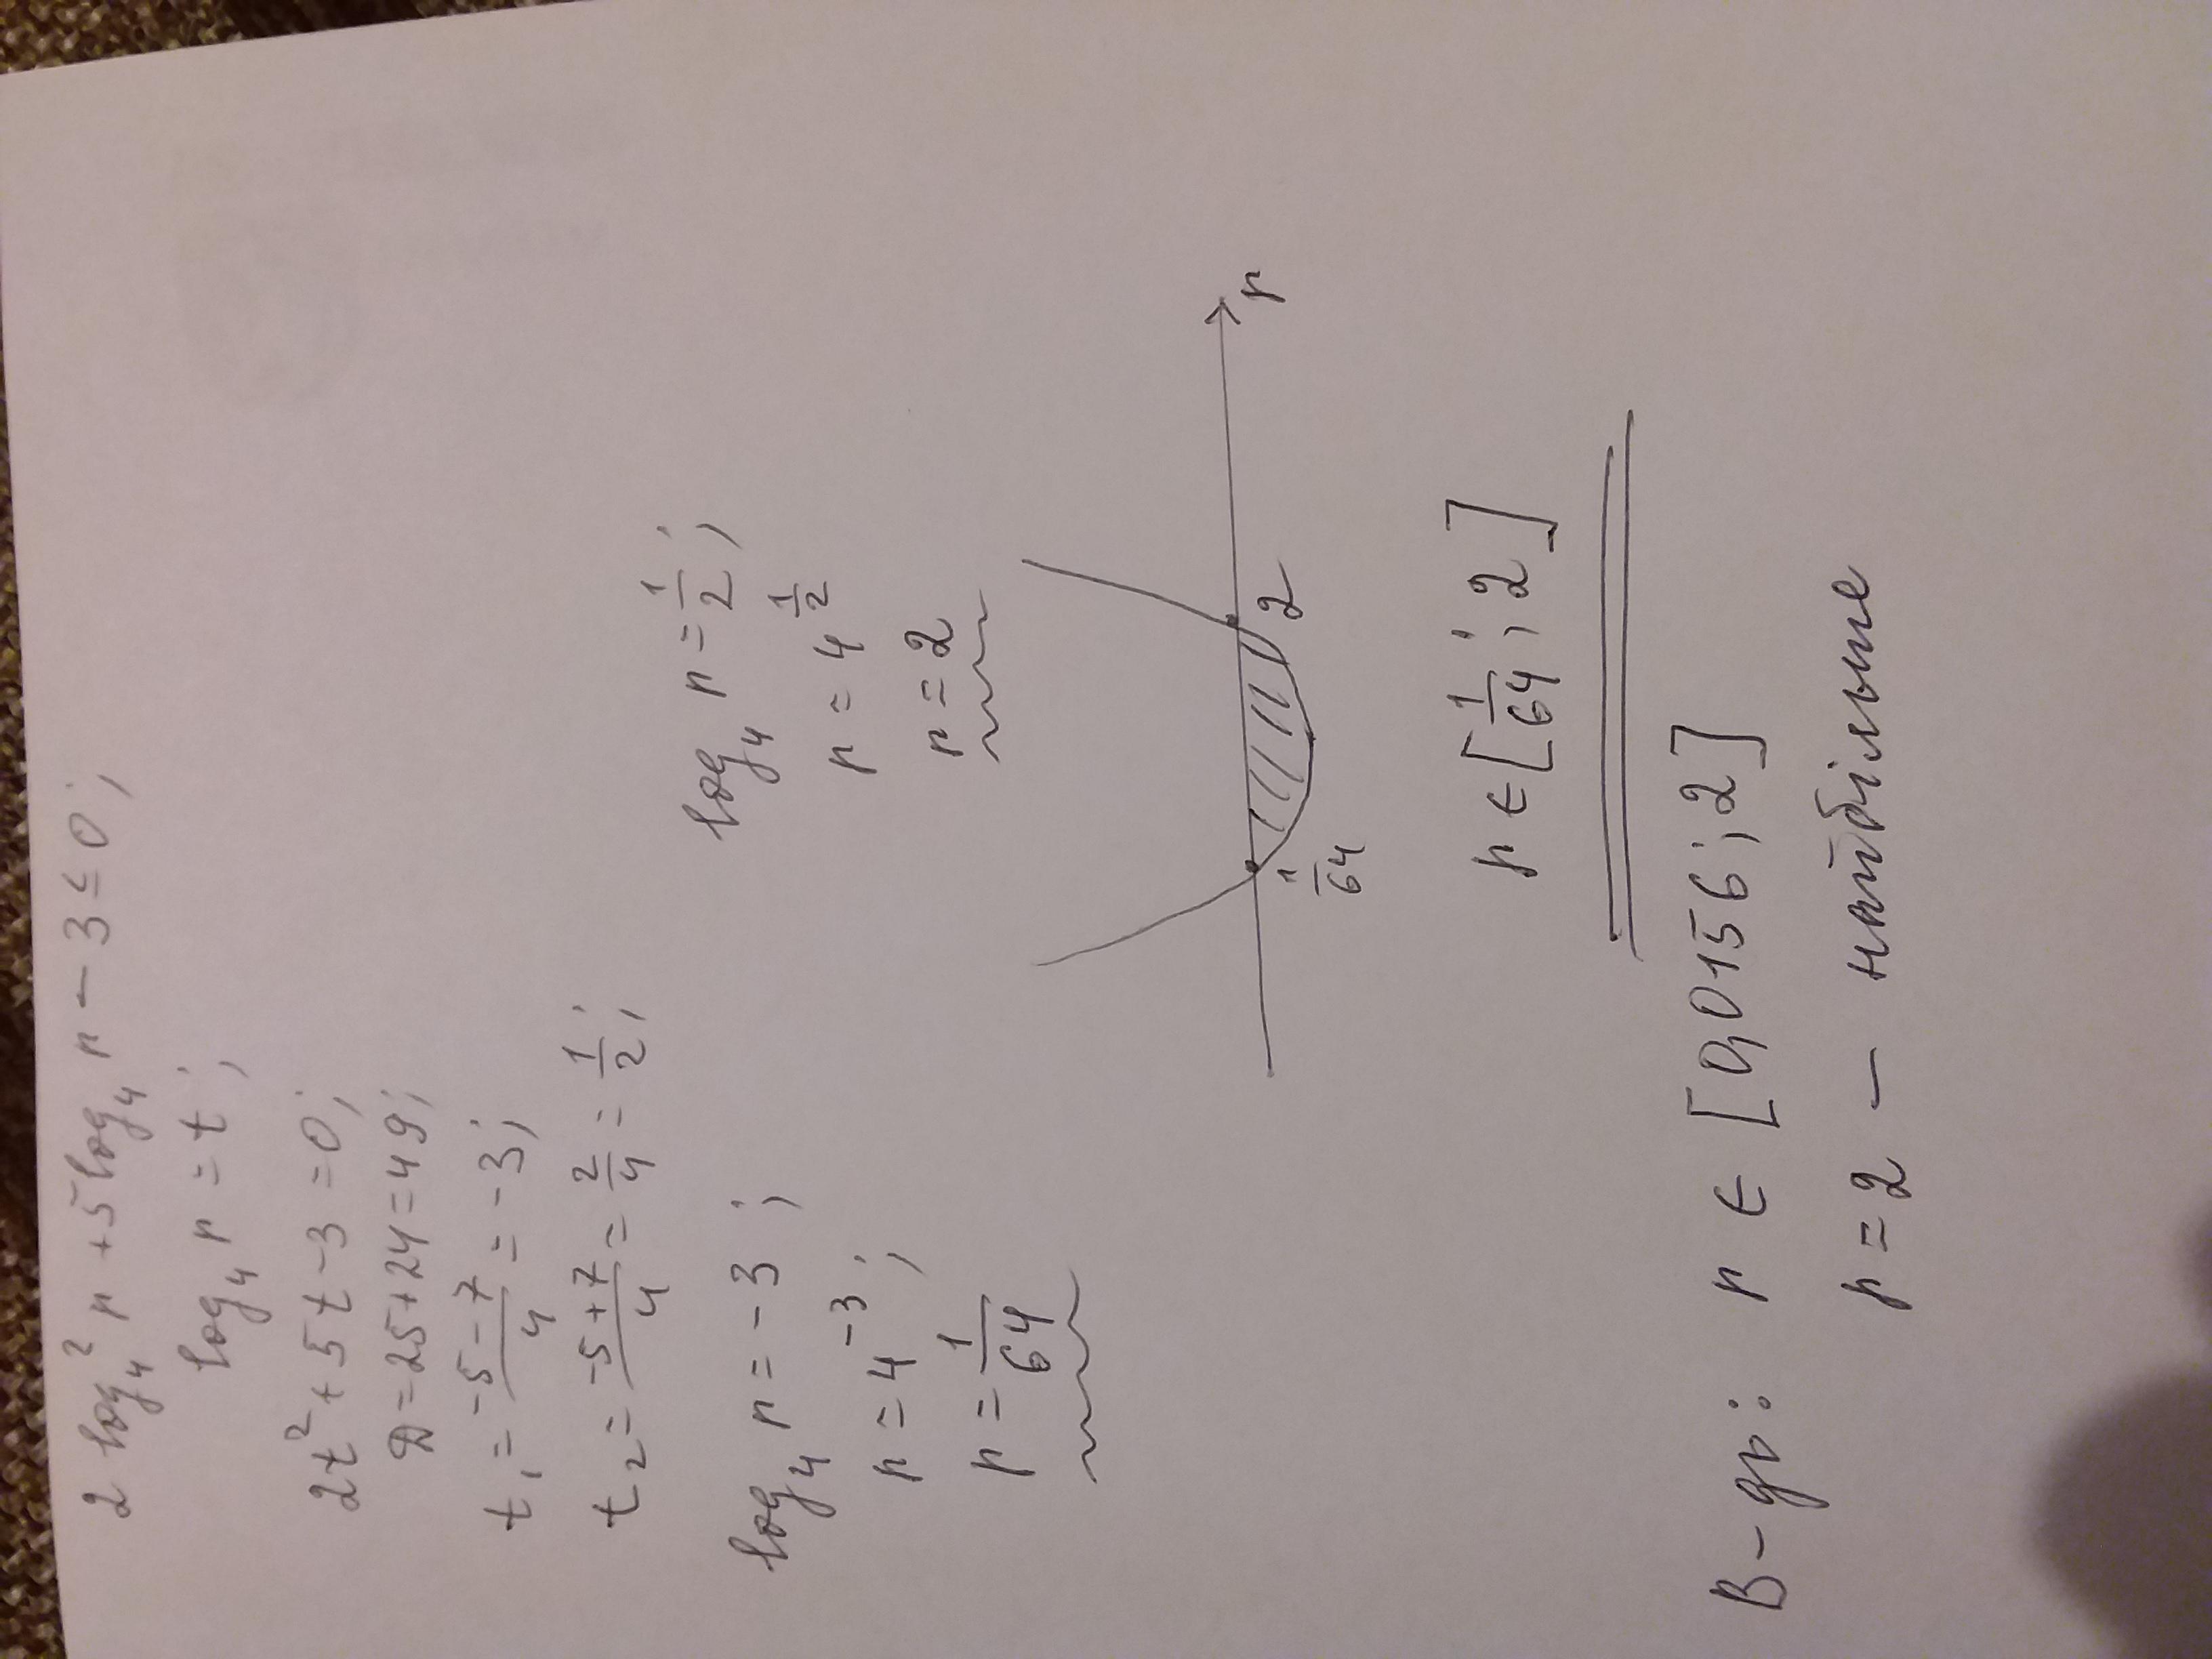 2 log₄² n + 5 log₄ n − 3 ≤ 0;
log₄ n = t;
2t² + 5t − 3 = 0;
D = 25 + 24 = 49;
t₁ = (−5 − 7)/4 = −3;
t₂ = (−5 + 7)/4 = 2/4 = 1/2;
log₄ n = −3;
n = 4⁻³;
n = 1/64
log₄ n = 1/2;
n = 4^(1/2)
n = 2
1/64 2 n
n ∈ [1/64; 2]
В-дь: n ∈ [0,0156; 2]
n = 2 — найбільше